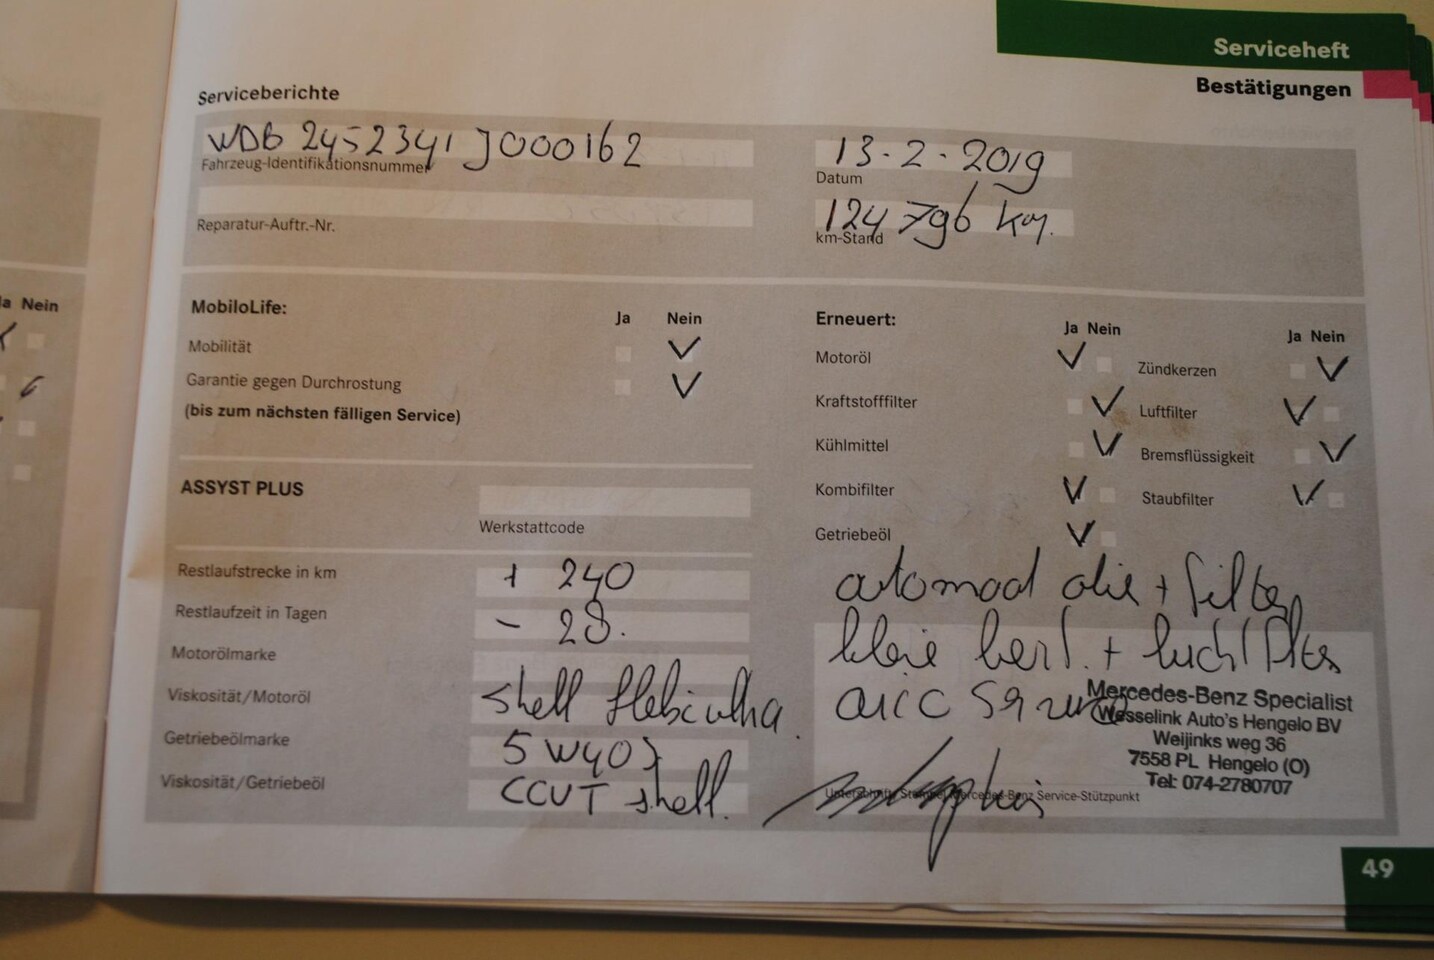 Serviceheft
Bestätigungen
Serviceberichte
WDB 2452341J000162
Fahrzeug-Identifikationsnummer
13-2-2019
Datum
Reparatur-Auftr.-Nr.
124796 km.
km-Stand
a Nein
MobiloLife:
Ja Nein
Mobilität
Garantie gegen Durchrostung
(bis zum nächsten fälligen Service)
Erneuert:
Ja Nein
Ja Nein
Motoröl
Zündkerzen
Kraftstofffilter
Luftfilter
Kühlmittel
Bremsflüssigkeit
Kombifilter
Staubfilter
Getriebeöl
ASSYST PLUS
Werkstattcode
Restlaufstrecke in km
+ 240
Restlaufzeit in Tagen
- 28.
Motorölmarke
Viskosität/Motoröl
Shell
Getriebeölmarke
5W40
Viskosität/Getriebeöl
CCUT shell.
automaat olie + filter
kleine beurt. + luchtfilter
airco
Mercedes-Benz Specialist
Wesselink Auto's Hengelo BV
Weijinks weg 36
7558 PL Hengelo (O)
Tel: 074-2780707
Unterschrift/Stempel Mercedes-Benz Service-Stützpunkt
49